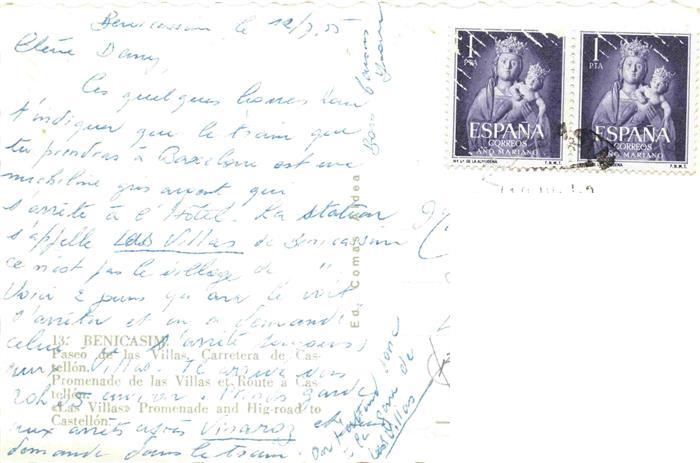 Benicassim le 12/7.55
Chère Dany,
Ces quelques lignes pour
t'indiquer que le train que
tu prendras à Barcelone est une
micheline qui avant que
s'arrête à l'Hôtel. La station
s'appelle Las Villas de Benicassim
ce n'est pas le village de "
Voici 2 jours qu'on le voit
s'arrêter et on a demandé
celui s'arrête toujours
aux Villas. Il arrive vers
20h 35 environ. Prends garde
aux arrêts après Vinaroz et
demande dans le train.
Bons baisers
on t'attend donc
à la gare de
Las Villas
13: BENICASIM
Paseo de las Villas. Carretera de Cas-
tellón.
Promenade de las Villas et Route a Cas-
tellón.
«Las Villas» Promenade and Hig-road to
Castellón.
Ed. Comas Aldea
1
PTA
ESPAÑA
CORREOS
AÑO MARIANO
Mª Lª DE LA ALMUDENA F.N.M.T.
1
PTA
ESPAÑA
CORREOS
AÑO MARIANO
F.N.M.T.